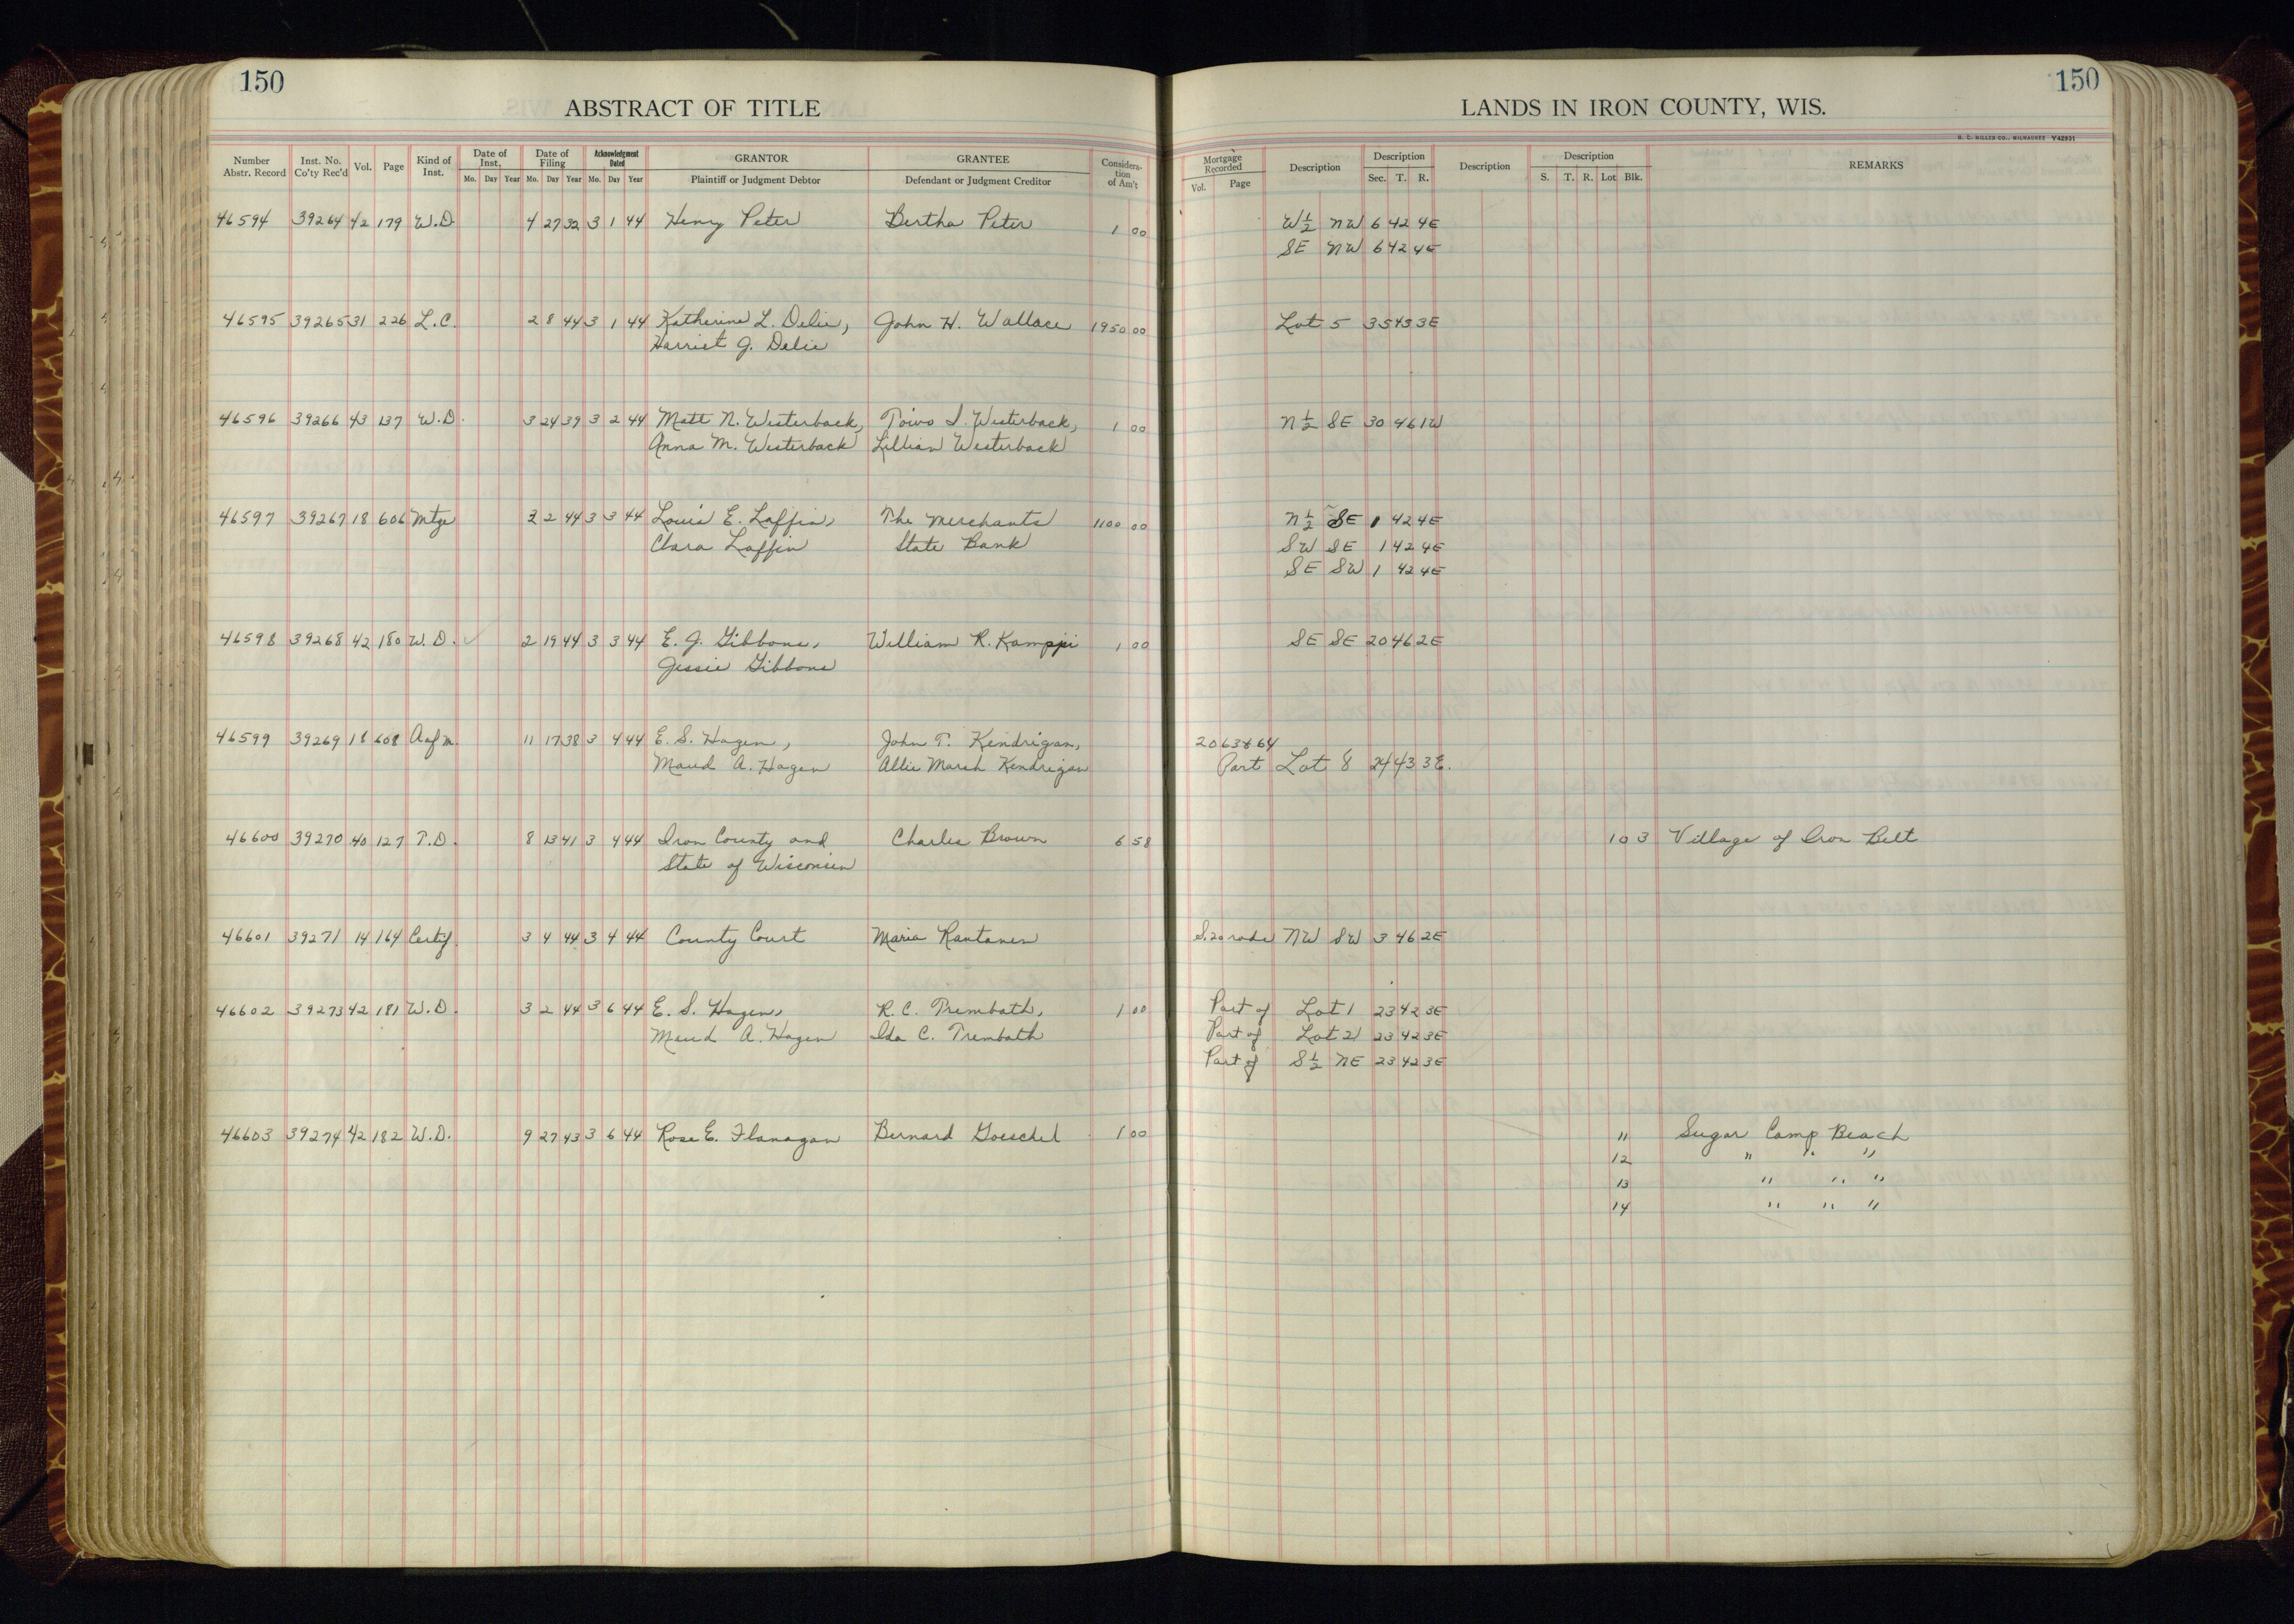 150
ABSTRACT OF TITLE
Number Abstr. Record Inst. No. Co'ty Rec'd Vol. Page Kind of Inst. Date of Inst. Mo. Day Year Date of Filing Mo. Day Year Acknowledgment Dated Mo. Day Year GRANTOR Plaintiff or Judgment Debtor GRANTEE Defendant or Judgment Creditor Considera-tion of Am't
46594 39264 42 179 W.D. 4 27 32 3 1 44 Henry Peter Bertha Peter 1 00
46595 39265 31 226 L.C. 2 8 44 3 1 44 Katherine L. Delie, John H. Wallace 1950 00
Harriet J. Delie
46596 39266 43 137 W.D. 3 24 39 3 2 44 Matt N. Westerback, Toivo I. Westerback, 1 00
Anna M. Westerback Lillian Westerback
46597 39267 18 606 Mtge 2 2 44 3 3 44 Louis E. Laffin, The Merchants 1100 00
Clara Laffin State Bank
46598 39268 42 180 W.D. 2 19 44 3 3 44 E. J. Gibbons, William R. Kamppi 1 00
Jessie Gibbons
46599 39269 18 608 Aofm. 11 17 38 3 4 44 E. S. Hagen, John T. Kendrigan,
Maud A. Hagen Allie Marsh Kendrigan
46600 39270 40 127 T.D. 8 13 41 3 4 44 Iron County and Charles Brown 6 58
State of Wisconsin
46601 39271 14 164 Certif. 3 4 44 3 4 44 County Court Maria Rantanen
46602 39273 42 181 W.D. 3 2 44 3 6 44 E. S. Hagen, R. C. Trembath, 1 00
Maud A. Hagen Ida C. Trembath
46603 39274 42 182 W.D. 9 27 43 3 6 44 Rose E. Flanagan Bernard Goeschel 1 00
150
LANDS IN IRON COUNTY, WIS.
H. C. MILLER CO., MILWAUKEE Y42931
Mortgage Recorded Vol. Page Description Description Sec. T. R. Description Description S. T. R. Lot Blk. REMARKS
W ½ NW 6 42 4E
SE NW 6 42 4E
Lot 5 35 43 3E
N ½ SE 30 46 1W
N ½ SE 1 42 4E
SW SE 1 42 4E
SE SW 1 42 4E
SE SE 20 46 2E
20 63864
Part Lot 8 24 43 3E.
10 3 Village of Iron Belt
S. 20 rods NW SW 3 46 2E
Part of Lot 1 23 42 3E
Part of Lot 2 23 42 3E
Part of S ½ NE 23 42 3E
11 Sugar Camp Beach
12 " " "
13 " " "
14 " " "